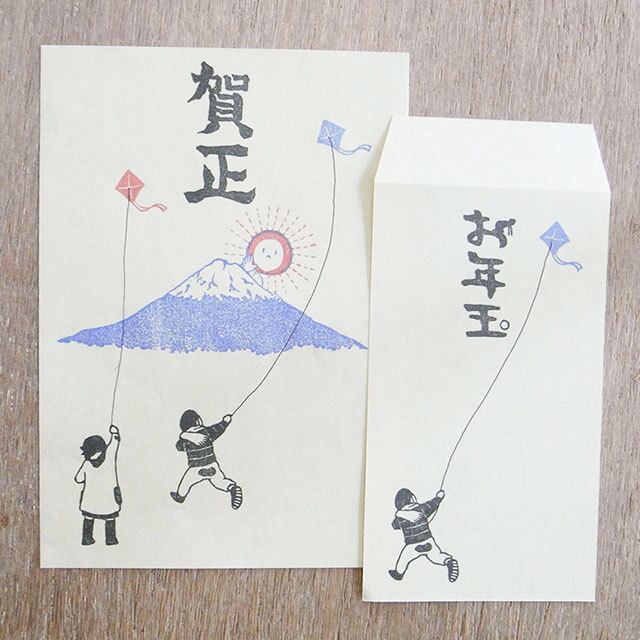 賀正
お年玉。